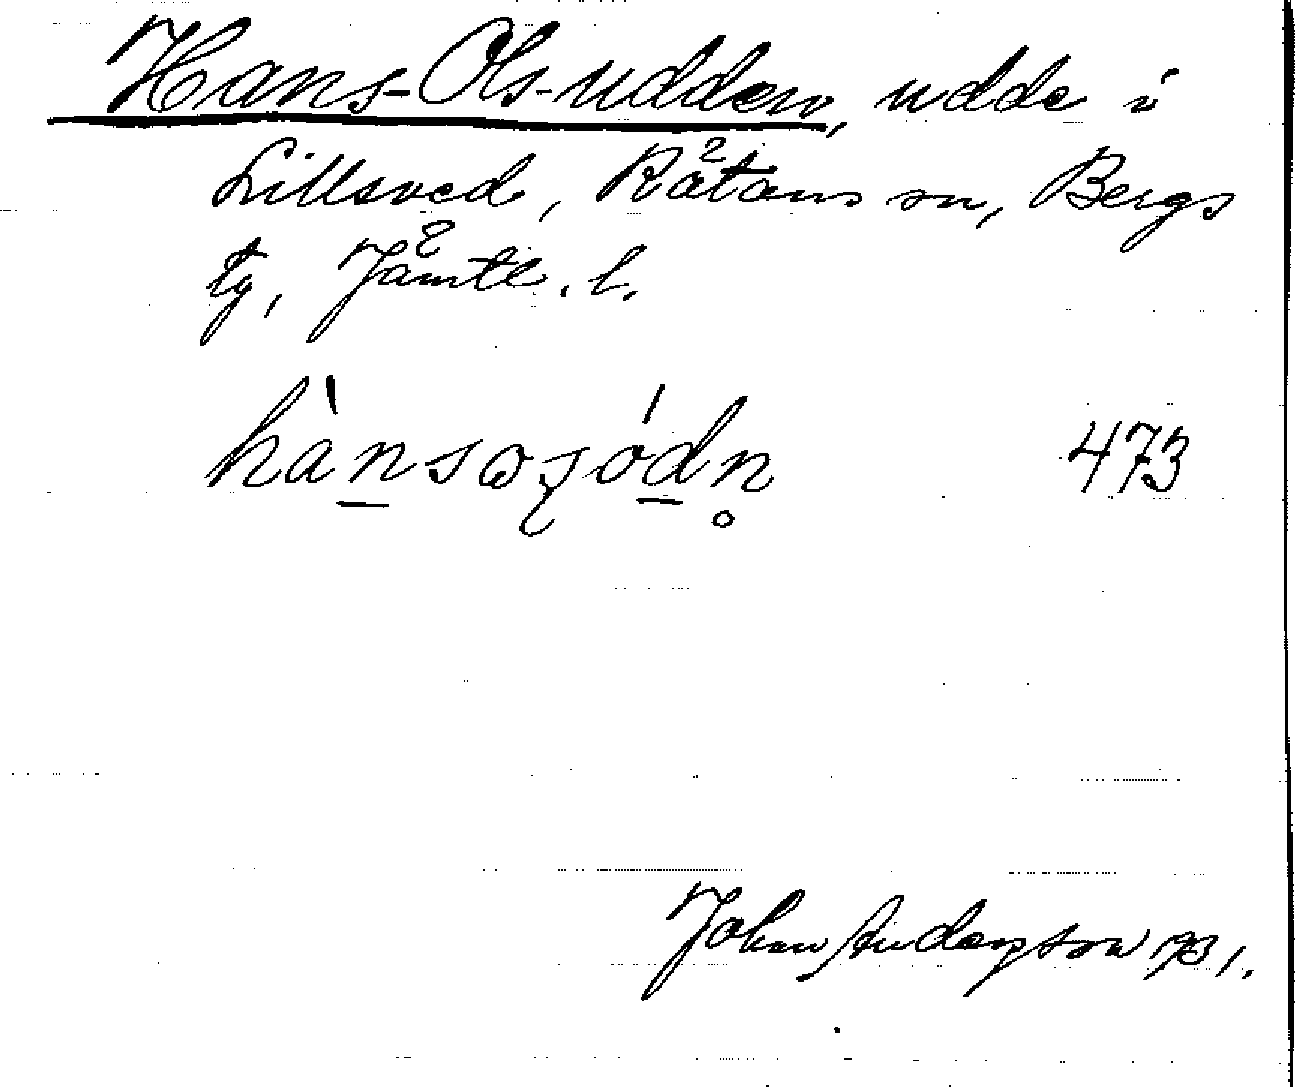 Hans-Ols-udden, udde i
Lillsved, Rätans sn, Bergs
tg, Jämtl. l.
hànsɷʒódn̥ 473
John Anderzson 1931.